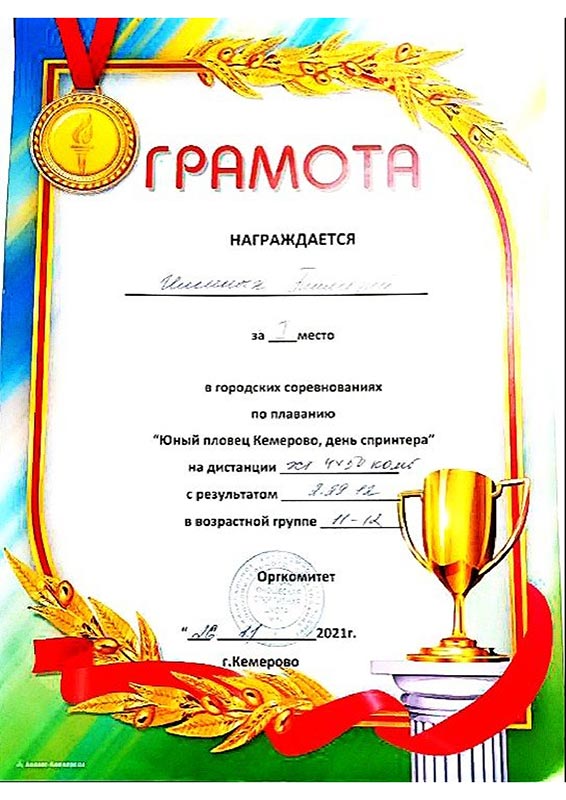 ГРАМОТА
НАГРАЖДАЕТСЯ
за I место
в городских соревнованиях
по плаванию
“Юный пловец Кемерово, день спринтера”
на дистанции эст 4×50 комб
с результатом
в возрастной группе 11-12
Оргкомитет
“26 11 2021г.
г.Кемерово